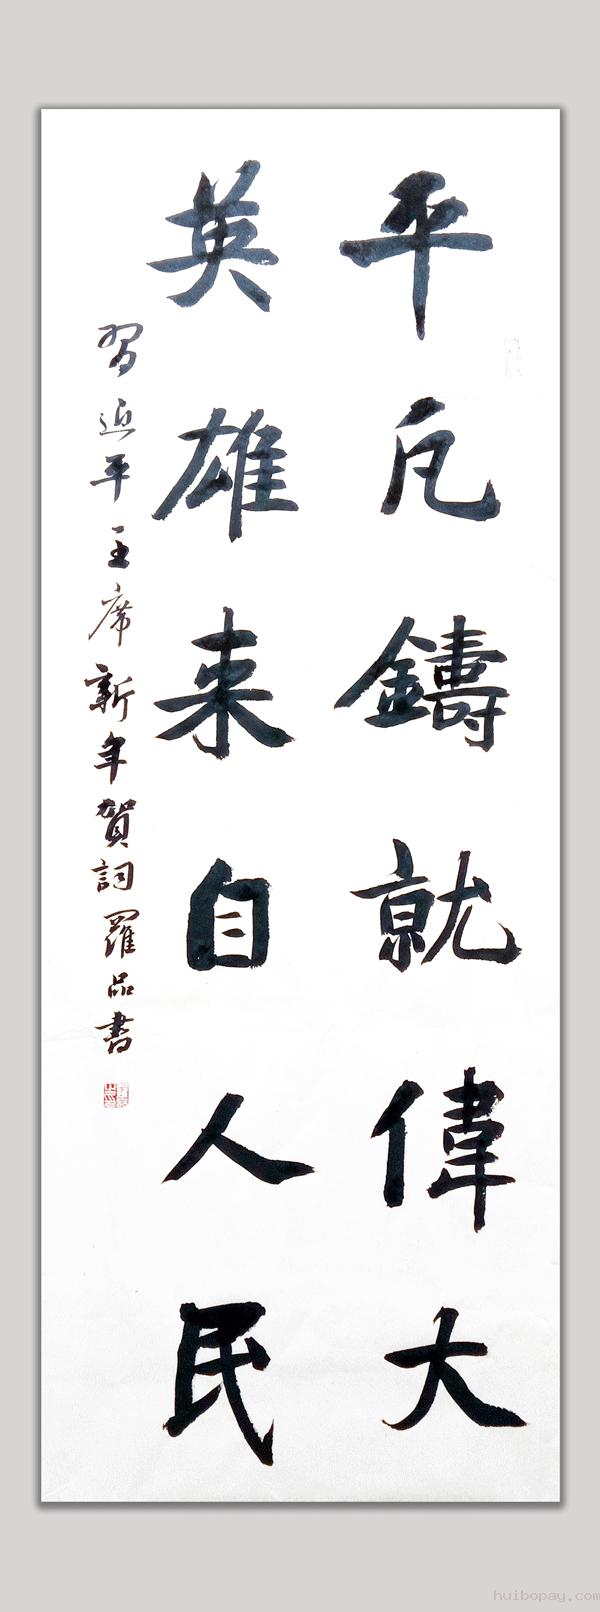 平凡鑄就偉大
英雄来自人民
習近平主席新年賀詞羅品書
huibopay.com